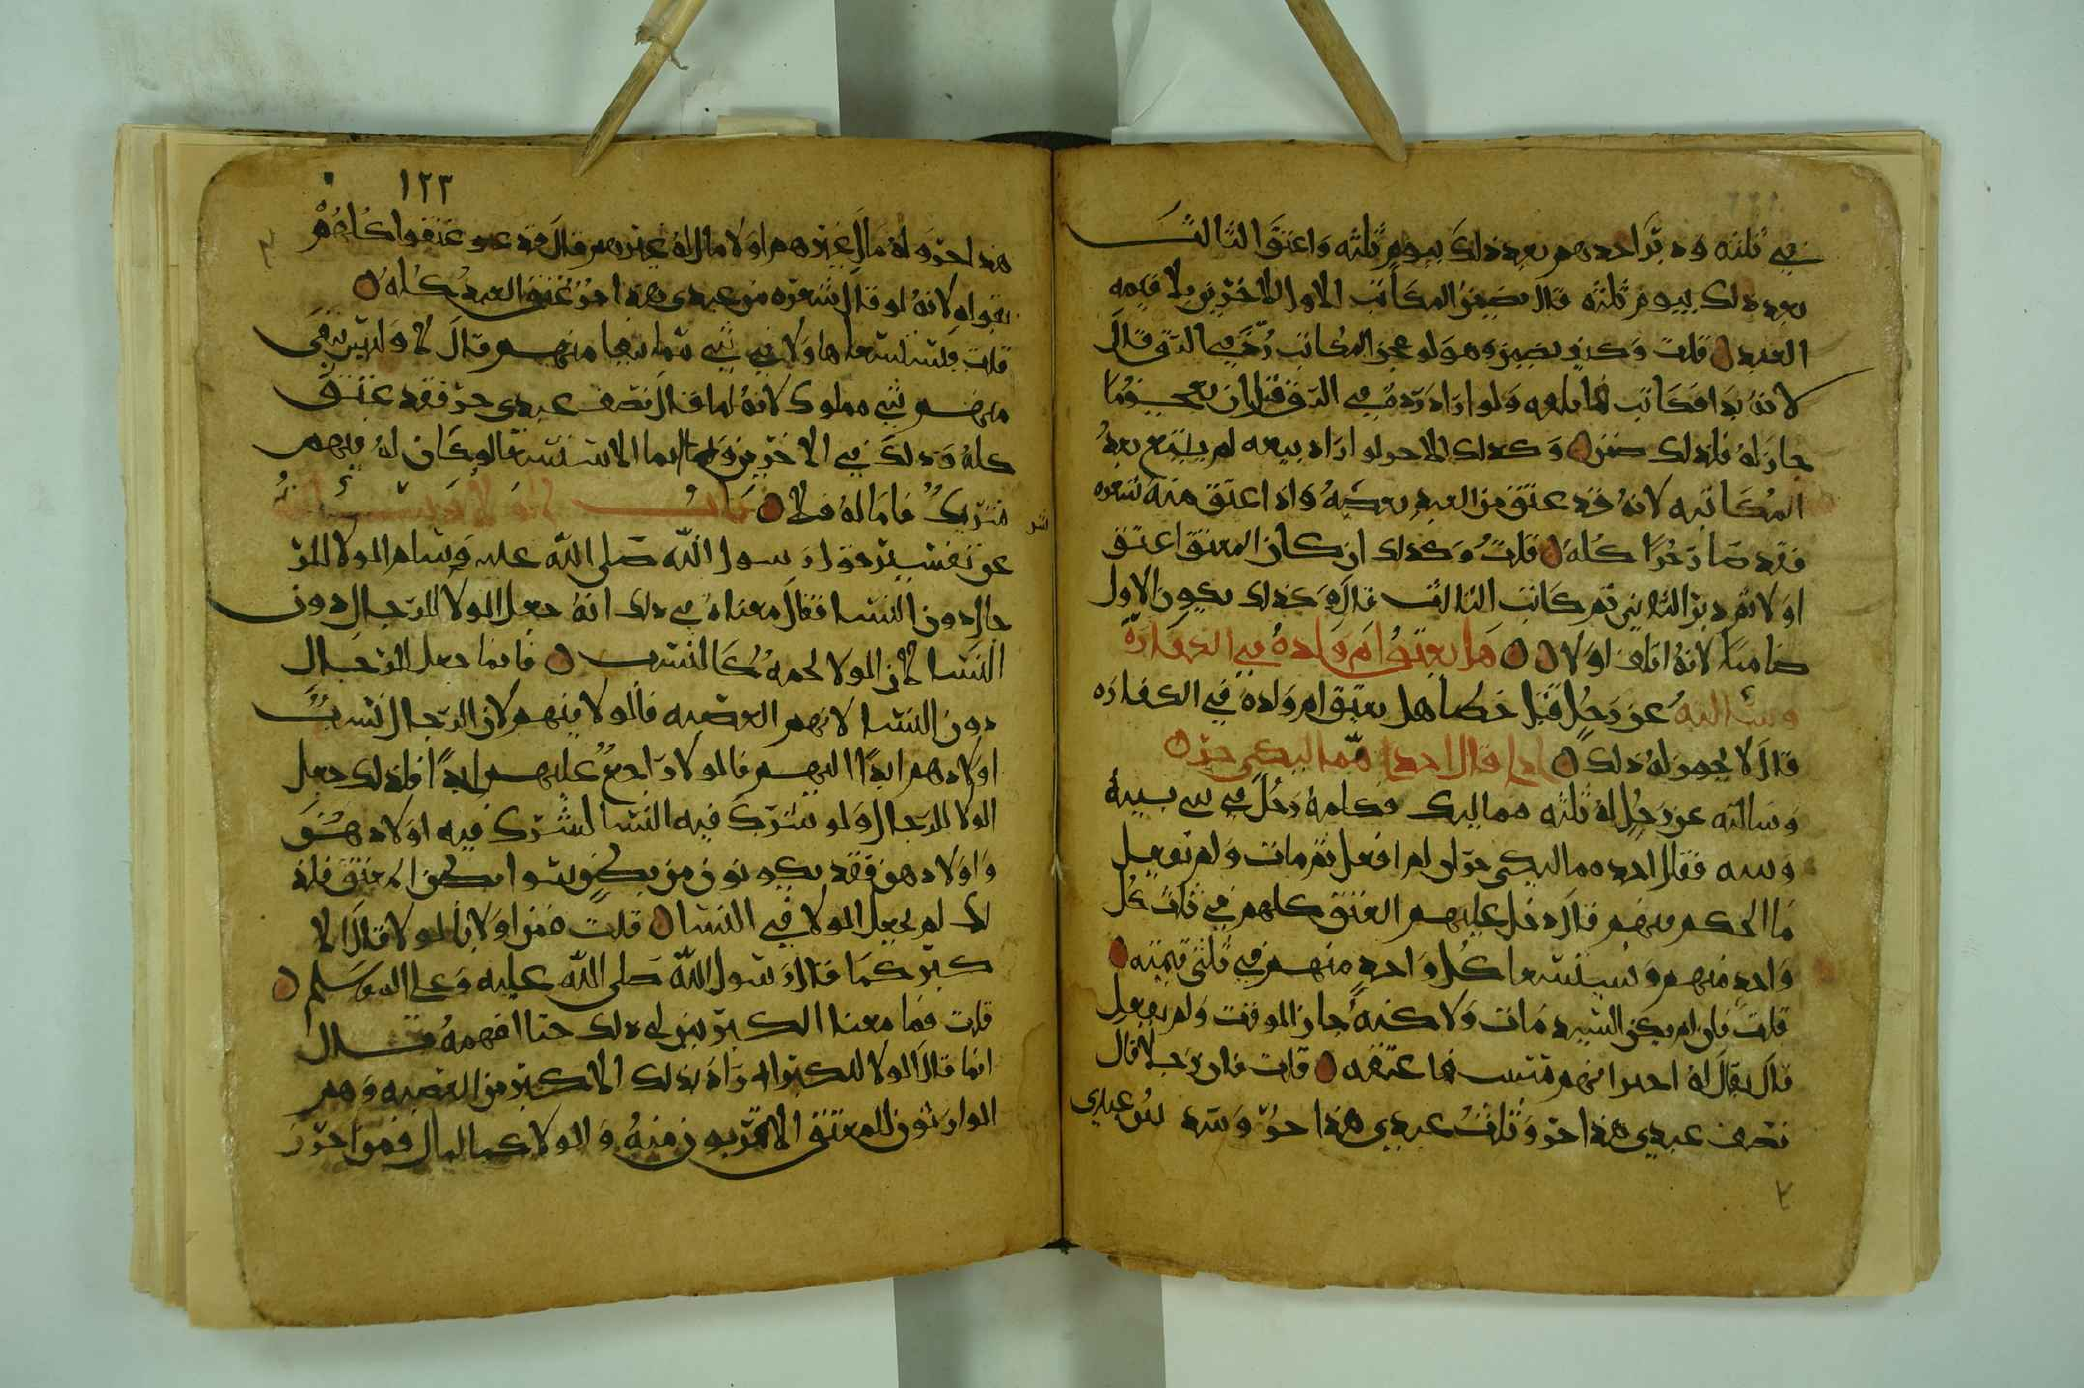 في ثلثه ودبر احدهم بعد ذلك بيوم ثلثه واعتق الثالث
بعد ذلك بيوم ثلثه قال يضمن المكاتب الاول للاخرين ثلا قيمه
العبد قلت وكيف يضمن وهو لو عجز المكاتب رد في الرق قال
لانه بدا فكاتب فاتلفه ولو اراد رده في الرق قبل ان يعجز وما
جاز له فلذلك ضمن وكذلك الاخر لو اراد بيعه لم يستطع بعد
المكاتبه لانه قد عتق من العبد بعضه واذا اعتق منه شعره
فقد صار حرا كله قلت وكذلك ان كان المعتق اعتق
اولا ثم دبر الثاني ثم كاتب الثالث قال وكذلك يكون الاول
ضامنا لانه اتلف اولا هل يعتق ام ولده في الكفاره
وسالته عن رجل قتل خطا هل يعتق ام ولده في الكفاره
قال لا يجوز له ذلك اذا قال احد مماليكي حر
وسالته عن رجل له ثلثه مماليك فكلمه رجل في شي بينه
وبينه فقال احد مماليكي حر ان لم افعل ثم مات ولم يفعل
ما الحكم فيهم قال دخل عليهم العتق كلهم في ثلث كل
واحد منهم ويستسعا كل واحد منهم في ثلثي قيمته
قلت فان لم يكن السيد مات ولاكنه جاز الموقت ولم يفعل
قال يقال له اخبر ايهم شيت فاعتقه قلت فان رجلا قال
نصف عبدي هذا حر وثلث عبدي هذا حر وسدس عبدي
١٢٣
هذا حر وله مال غيرهم او لا مال له غيرهم قال قد عتقوا كلهم
بقوله لانه لو قال شعره من عبدي هذا حر عتق العبد كله
قلت فيستسعا ولا في شي مما بقا منهم قال لا وليس بقى
منهم شي مملوك لانه لما قال نصف عبدي حر فقد عتق
كله وذلك في الاخرين وانما الاستسعا لو كان له فيهم
شريك فاما له فلا
عن تفسير قول رسول الله صلى الله عليه وسلم الولا للر
جال دون النسا فقال معناه في ذلك انه جعل الولا للرجال دون
النسا لان الولا لحمه كالنسب فانما جعل للرجال
دون النسا لانهم العصبه فالولا فيهم لان الرجال نسب
اولادهم ابدا اليهم فالولا راجع عليهم ابدا فلذلك جعل
الولا للرجال ولو شرك فيه النسا لشرك فيه اولادهن
واولادهن فقد يكونون من بطن سوا بطن المعتق فلذ
لك لم يجعل الولا في النسا قلت فمن اولا بالولا قال الا
كبر كما قال رسول الله صلى الله عليه وعلى اله وسلم
قلت فما معنا الكبر بين لي ذلك حتا افهمه قال
انما قال الولا للكبر اراد بذلك الاكبر من العصبه وهم
الوارثون للمعتق الاقربون منه والولا كما المال فمن احرز